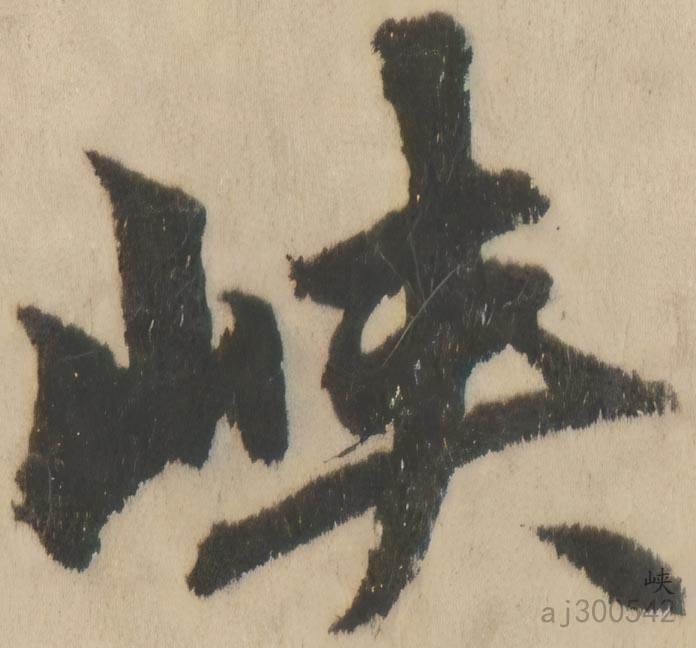 峡
峡
aj300542